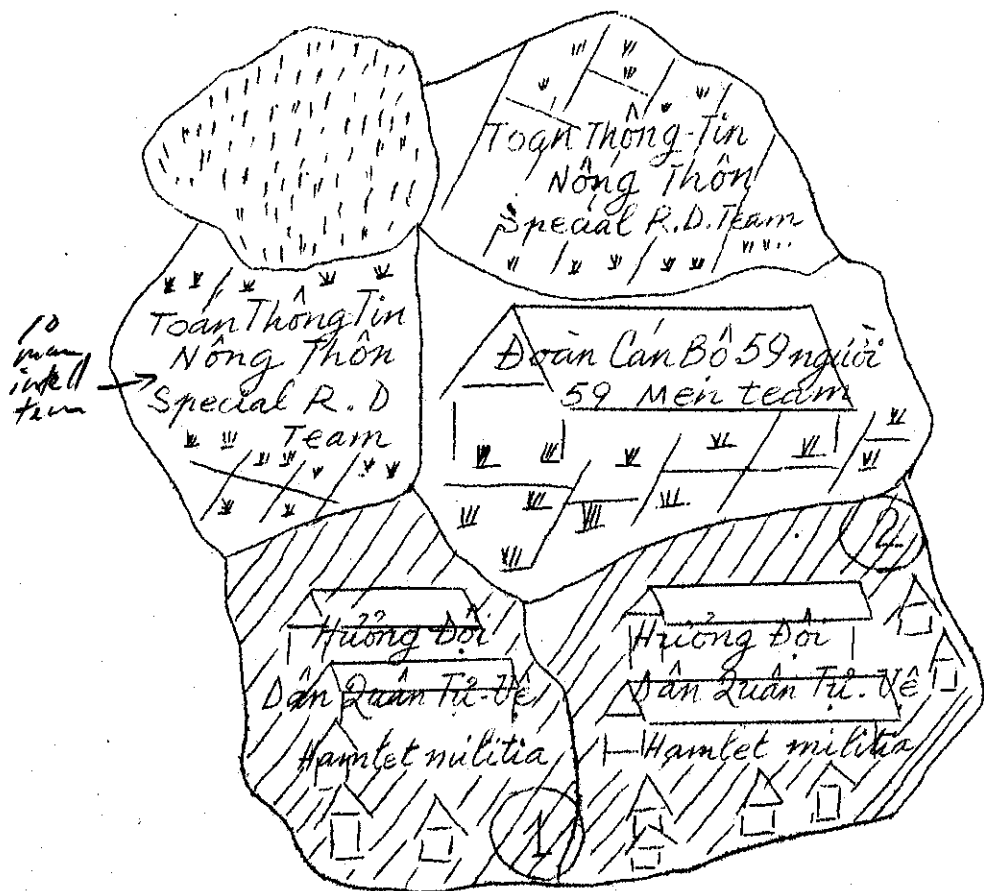 Toán Thông-Tin
Nông Thôn
Special R.D. Team
10
man
intell
team
Toán Thông Tin
Nông Thôn
Special R.D
Team
Đoàn Cán Bộ 59 người
59 Men team
2
Hưởng Đội
Dân Quân Tự-Vệ
Hamlet militia
1
Hưởng Đội
Dân Quân Tự-Vệ
Hamlet militia